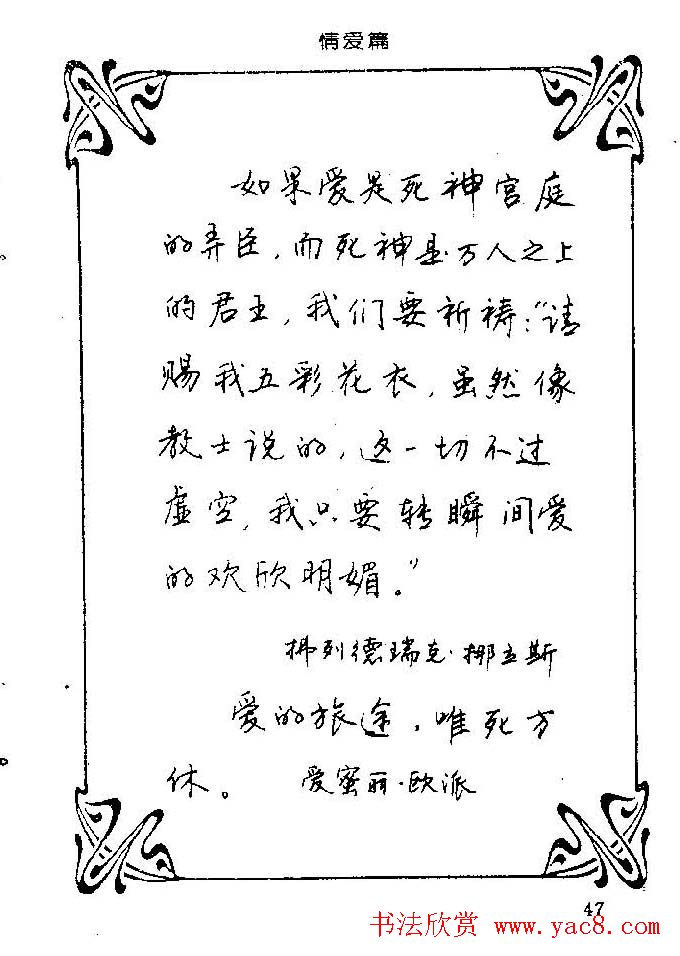 情爱篇
如果爱是死神宫庭
的弄臣，而死神是万人之上
的君王，我们要祈祷：“请
赐我五彩花衣，虽然像
教士说的，这一切不过
虚空，我只要转瞬间爱
的欢欣明媚。”
弗列德瑞克·挪立斯
爱的旅途，唯死方
休。 爱蜜丽·欧派
47
书法欣赏 www.yac8.com